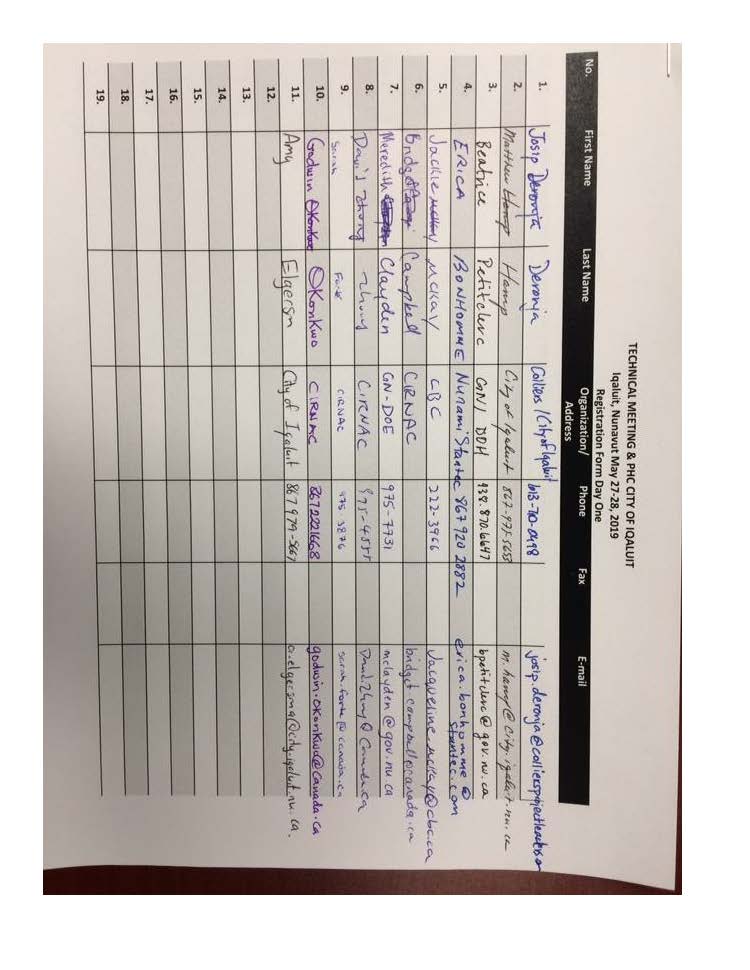 TECHNICAL MEETING & PHC CITY OF IQALUIT
Iqaluit, Nunavut May 27-28, 2019
Registration Form Day One
No. First Name Last Name Organization/ Address Phone Fax E-mail
1. Josip Deronja Deronja Colliers / City of Iqaluit 613-710-0498 josip.deronja@colliersprojectleaders.com
2. Matthew Hamp Hamp City of Iqaluit 867-975-5653 m.hamp@city.iqaluit.nu.ca
3. Beatrice Petitclerc GN / DOH 438.870.6647 bpetitclerc@gov.nu.ca
4. ERICA BONHOMME Nunami Stantec 867 920 2882 erica.bonhomme@stantec.com
5. Jackie McKay CBC 222-3966 Jacqueline.mckay@cbc.ca
6. Bridget Campbell CIRNAC bridget.campbell@canada.ca
7. Meredith Clayden GN-DOE 975-7731 mclayden@gov.nu.ca
8. David Zhong Zhong CIRNAC 975-4555 David.Zhong@Canada.ca
9. Sarah Forte CIRNAC 975 3876 sarah.forte@canada.ca
10. Godwin Okonkwo Okonkwo CIRNAC 8672221668 godwin.okonkwo@Canada.ca
11. Amy Elgersma City of Iqaluit 867 979-5667 a.elgersma@city.iqaluit.nu.ca.
12.
13.
14.
15.
16.
17.
18.
19.